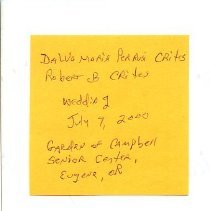 Maria Perrin Crites
Robert B Crites
Wedding
July 7, 2000
Garden of Campbell
Senior Center,
Eugene, OR